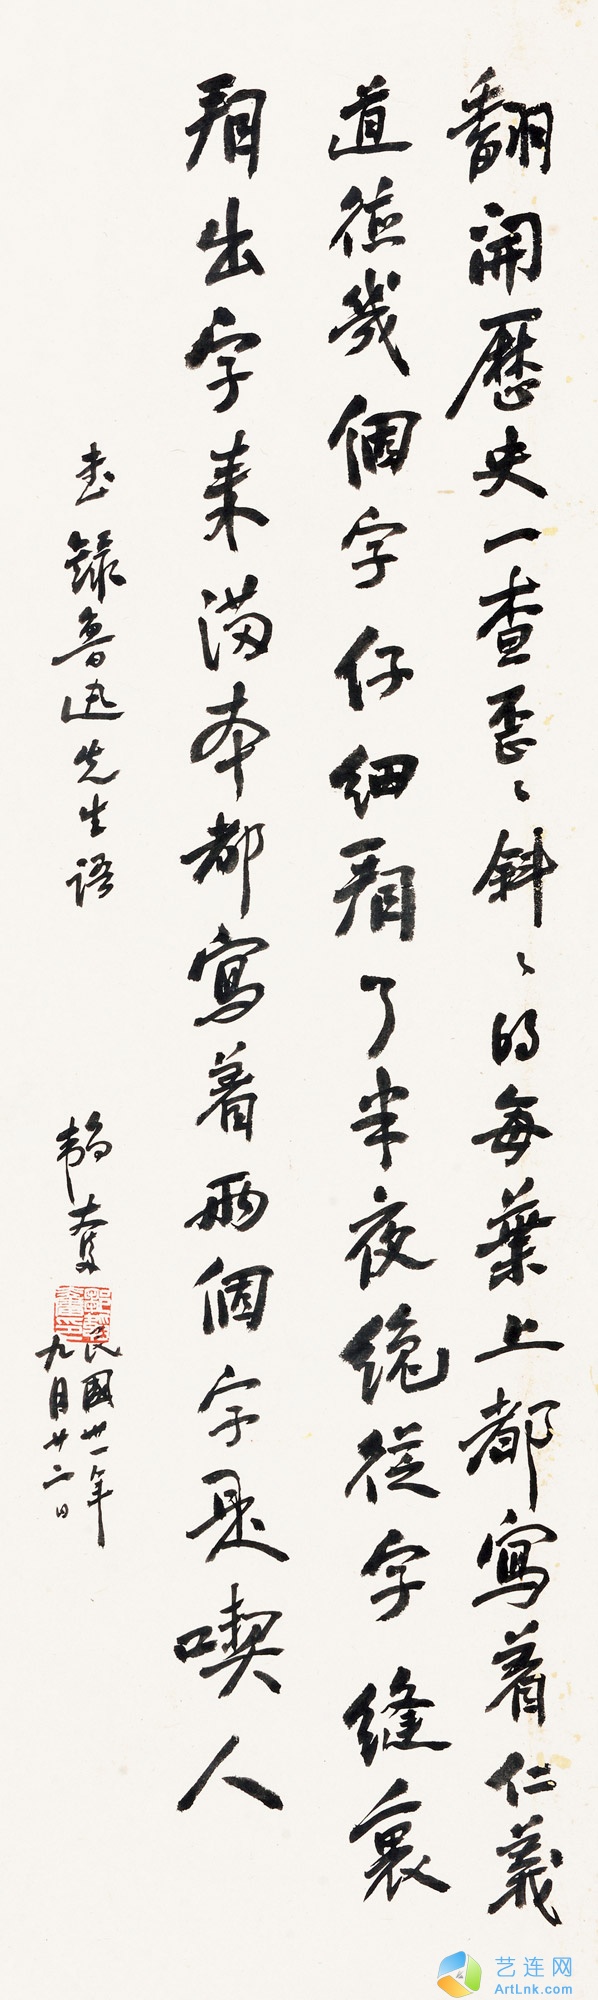 翻開歷史一查歪〻斜〻的每葉上都寫着仁義
道德幾個字仔細看了半夜纔從字縫裏
看出字來滿本都寫着兩個字是喫人
書錄魯迅先生語
韜奮
民國卅一年
九月廿二日
艺连网
ArtLnk.com